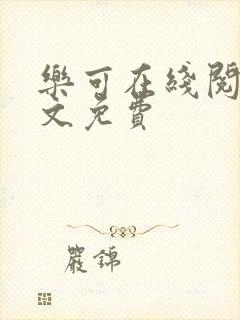 樂可在綫閱
文免費
嚴錦